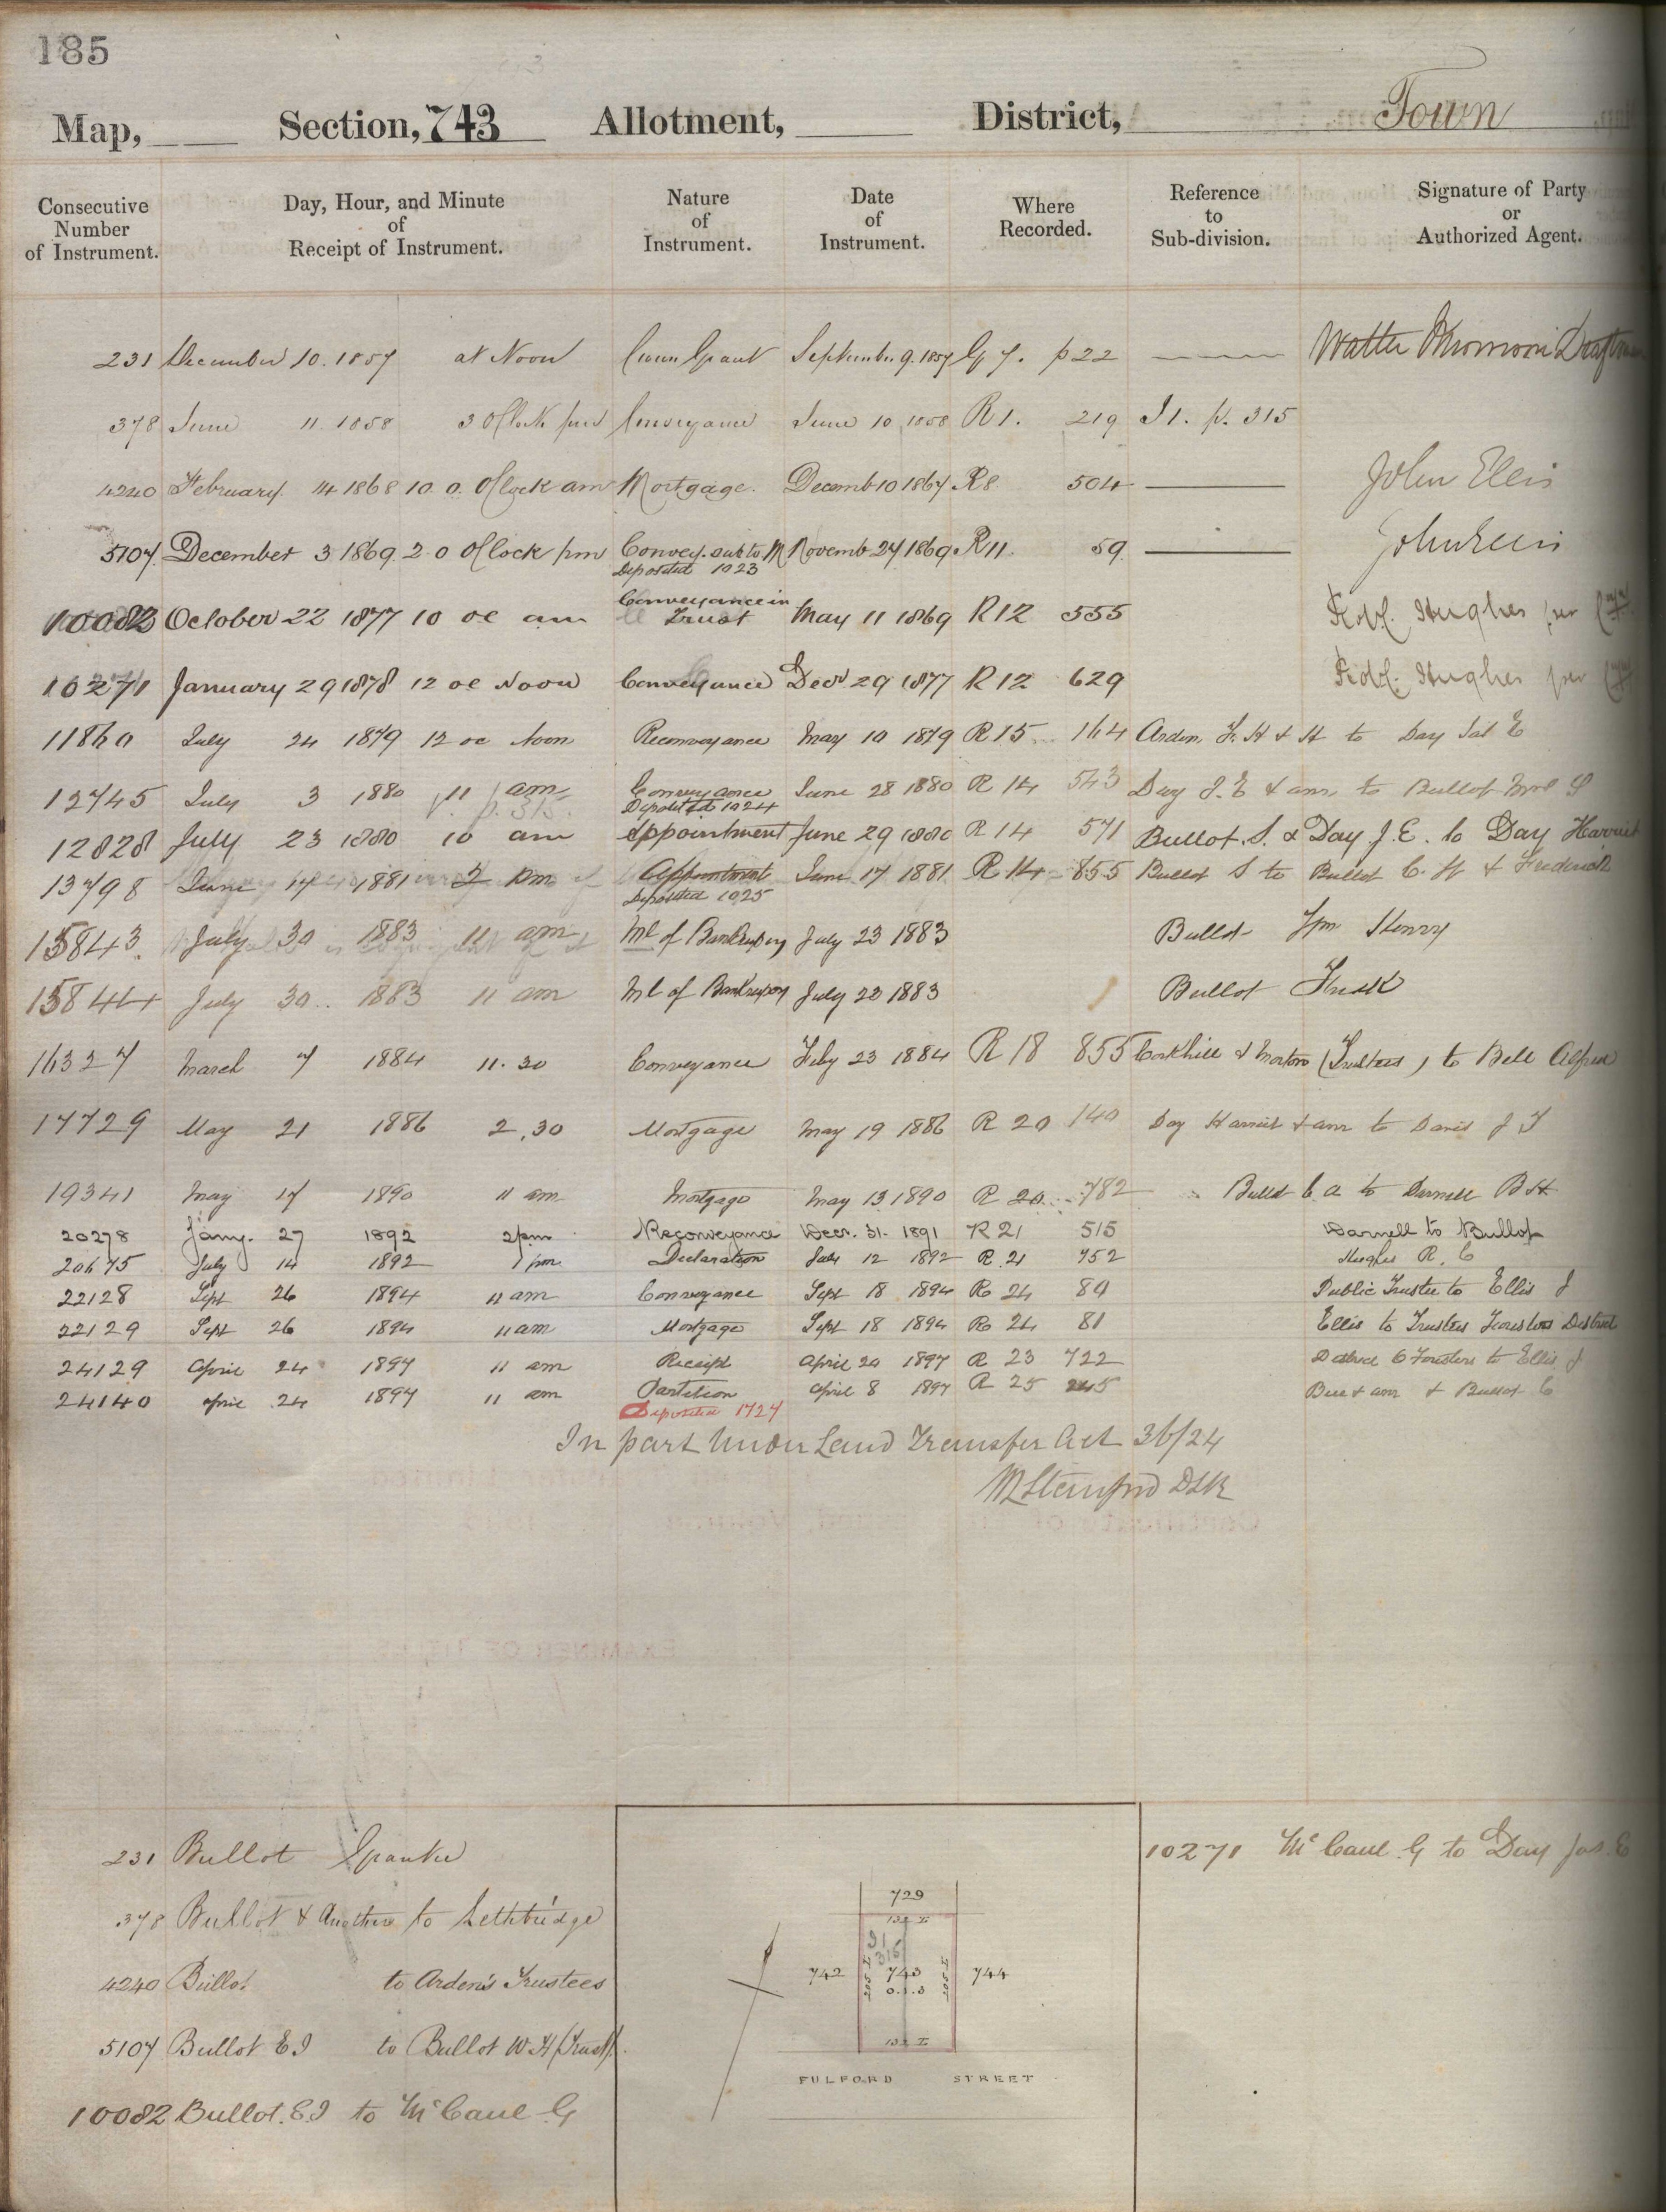 185
Map, Section, 743 Allotment, District, Town
Consecutive Number of Instrument. Day, Hour, and Minute of Receipt of Instrument. Nature of Instrument. Date of Instrument. Where Recorded. Reference to Sub-division. Signature of Party or Authorized Agent.
231 December 10. 1857 at Noon Crown Grant September 9. 1857 G 7. p 22 Walter
378 June 11. 1858 3 OClock pm Conveyance June 10 1858 R 1. 219 I 1. p. 315
4240 February 14 1868 10. o. OClock am Mortgage. Decemb 10 1867 R 8 504 John Ellis
5107 December 3 1869. 2. o OClock pm Convey. sub to M Novemb 27 1869 R 11. 59 John Ellis
Deposited 1023
10082 October 22 1877 10 oc am Conveyance in Trust May 11 1869 R 12 555 Hughes per
10271 January 29 1878 12 oc Noon Conveyance Decr 29 1877 R 12 629 Hughes per
11860 July 24 1879 12 oc Noon Reconveyance May 10 1879 R 15 164 Arden, F. H & H to Day Jas E
12745 July 3 1880 11 am Conveyance June 28 1880 R 14 543 Day J. E & anr to Bullot S
p. 315. Deposited 1024
12828 July 23 1880 10 am Appointment June 29 1880 R 14 571 Bullot. S. & Day J. E. to Day Harriet
13798 June 17 1881 2 pm Appointment June 17 1881 R 14 855 Bullot S to Bullot C. H & Frederick
Deposited 1025
15843. July 30 1883 11 am Ml of Bankrupcy July 23 1883 Bullot Wm Henry
15844 July 30.. 1883 11 am Ml of Bankrupcy July 23 1883 Bullot Fredk
16327 March 7 1884 11. 30 Conveyance Feby 23 1884 R 18 855 Corkhill & Morton (Trustees) to Bell Alfred
17729 May 21 1886 2. 30 Mortgage May 19 1886 R 20 140 Day Harriet & anr to David J T
19341 May 17 1890 11 am Mortgage May 13 1890 R 20 782 Bullot C. A to Darnell B H
20278 Jany. 27 1892 2 pm Reconveyance Decr. 31. 1891 R 21 515 Darnell to Bullot
20675 July 14 1892 1 pm Declaration July 12 1892 R. 21 752 Hughes R. C
22128 Sept 26 1894 11 am Conveyance Sept 18 1894 R 24 80 Public Trustee to Ellis J
22129 Sept 26 1894 11 am Mortgage Sept 18 1894 R 24 81 Ellis to Trustees Foresters District
24129 April 24 1897 11 am Receipt April 20 1897 R 23 722 District C Foresters to Ellis J
24140 April 24 1897 11 am Partition April 8 1897 R 25 245 Bell & anr & Bullot C
Deposited 1727
In part Under Land Transfer Act 36/24
DLR
231 Bullot Grantee
378 Bullot & Another to Lethbridge
4240 Bullot to Arden's Trustees
5107 Bullot E I to Bullot W. H (Trust).
10082 Bullot. E. I to McCaul G
10271 McCaul. G to Day Jas. E
729
742 743 744
0.1.0
FULFORD STREET